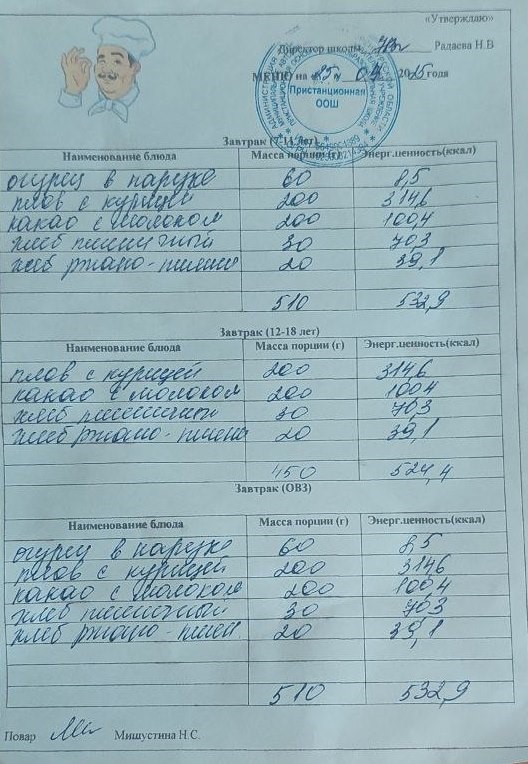 «Утверждаю»
Директор школы Радаева Н.В
МЕНЮ на «25» 09 2025года
Пристанционная
ООШ
Завтрак (7-11 лет)
Наименование блюда Масса порции (г) Энерг.ценность(ккал)
огурец в нарезке 60 8,5
плов с курицей 200 314,6
какао с молоком 200 100,4
хлеб пшеничный 30 70,3
хлеб ржано-пшенич 20 39,1
510 532,9
Завтрак (12-18 лет)
Наименование блюда Масса порции (г) Энерг.ценность(ккал)
плов с курицей 200 314,6
какао с молоком 200 100,4
хлеб пшеничный 30 70,3
хлеб ржано-пшенич 20 39,1
450 524,4
Завтрак (ОВЗ)
Наименование блюда Масса порции (г) Энерг.ценность(ккал)
огурец в нарезке 60 8,5
плов с курицей 200 314,6
какао с молоком 200 100,4
хлеб пшеничный 30 70,3
хлеб ржано-пшен. 20 39,1
510 532,9
Повар Мишустина Н.С.